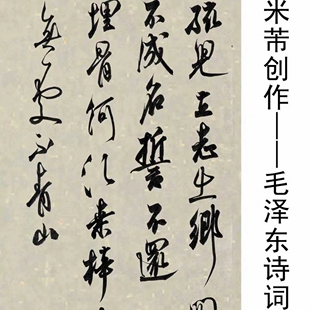 米芾创作——毛泽东诗词
孩兒立志出鄉
不成名誓不還
埋骨何須桑梓
無處不青山